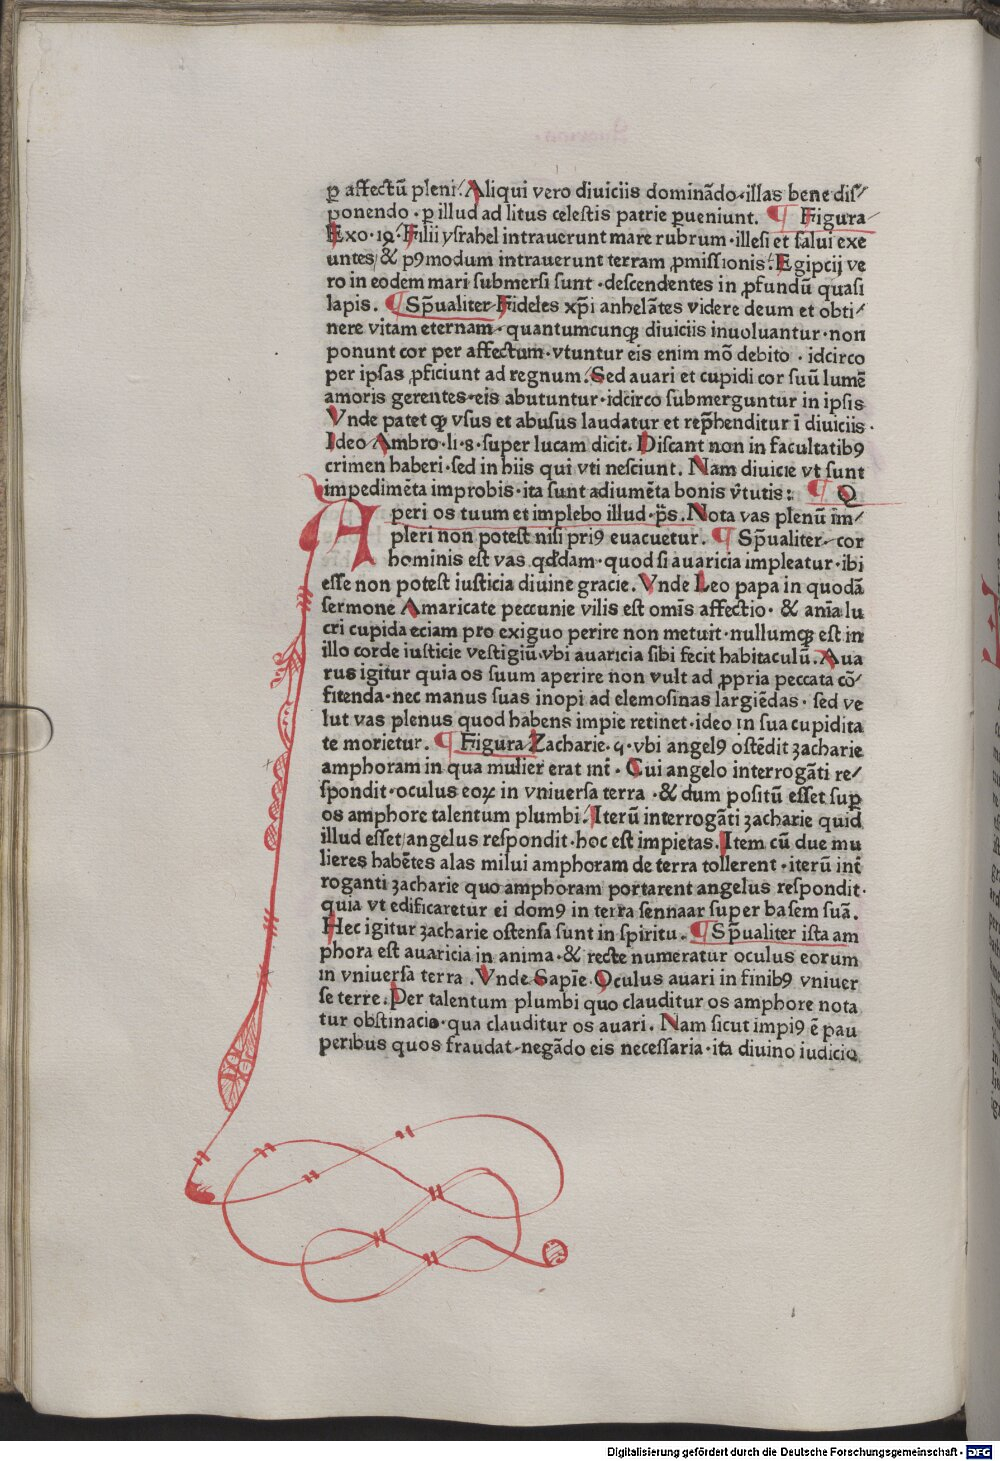 ꝑ affectū pleni. Aliqui vero diuiciis dominādo·illas bene diſ⸗
ponendo·ꝑ illud ad litus celeſtis patrie ꝑueniunt. ¶ Figura
Exo·19·Filii yſrahel intrauerunt mare rubrum·illeſi et ſalui exe
untes/& pꝰmodum intrauerunt terram ꝓmiſſionis. Egiptij ve
ro in eodem mari ſubmerſi ſunt·deſcendentes in ꝓfundū quaſi
lapis. ¶ Sp̄ualiter Fideles xp̄i anhelātes videre deum et obti⸗
nere vitam eternam·quantumcunqꝫ diuiciis inuoluantur·non
ponunt cor per affectum·vtuntur eis enim mō debito·idcirco
per ipſas ꝓficiunt ad regnum. Sed auari et cupidi cor ſuū lumē
amoris gerentes·eis abutuntur·idcirco ſubmerguntur in ipſis
Vnde patet ꝙ vſus et abuſus laudatur et rep̄henditur ī diuiciis·
Ideo Ambro·li·8·ſuper lucam dicit. Diſcant non in facultatibꝰ
crimen haberi·ſed in hiis qui vti neſciunt. Nam diuicie vt ſunt
impedimēta improbis·ita ſunt adiumēta bonis v̄tutis: ¶ Q
Aperi os tuum et implebo illud·p̄s. Nota vas plenū im⸗
pleri non poteſt niſi priꝰ euacuetur. ¶ Sp̄ualiter cor
hominis eſt vas qd̄dam·quod ſi auaricia impleatur·ibi
eſſe non poteſt iuſticia diuine gracie. Vnde Leo papa in quodā
ſermone Amaricate peccunie vilis eſt omīs affectio·& anīa lu
cri cupida eciam pro exiguo perire non metuit·nullumqꝫ eſt in
illo corde iuſticie veſtigiū·vbi auaricia ſibi fecit habitaculū. Aua
rus igitur quia os ſuum aperire non vult ad ꝓpria peccata cō⸗
fitenda·nec manus ſuas inopi ad elemoſinas largiēdas·ſed ve
lut vas plenus quod habens impie retinet·ideo in ſua cupidita
te morietur. ¶ Figura Zacharie·q·vbi angelꝰ oſtēdit zacharie
amphoram in qua mulier erat int̄·Cui angelo interrogāti re⸗
ſpondit·oculus eoꝝ in vniuerſa terra·& dum poſitū eſſet ſuꝑ
os amphore talentum plumbi. Iterū interrogāti zacharie quid
illud eſſet/angelus reſpondit·hoc eſt impietas. Item cū due mu
lieres habētes alas milui amphoram de terra tollerent·iterū int̄
roganti zacharie quo amphoram portarent angelus reſpondit·
quia vt edificaretur ei domꝰ in terra ſennaar ſuper baſem ſuā.
Hec igitur zacharie oſtenſa ſunt in ſpiritu. ¶ Sp̄ualiter iſta am
phora eſt auaricia in anima·& recte numeratur oculus eorum
in vniuerſa terra. Vnde Sapiē·Oculus auari in finibꝰ vniuer
ſe terre. Per talentum plumbi quo clauditur os amphore nota
tur obſtinacio·qua clauditur os auari. Nam ſicut impiꝰ ē pau
peribus quos fraudat·negādo eis neceſſaria·ita diuino iudicio
Digitalisierung gefördert durch die Deutsche Forschungsgemeinschaft - DFG